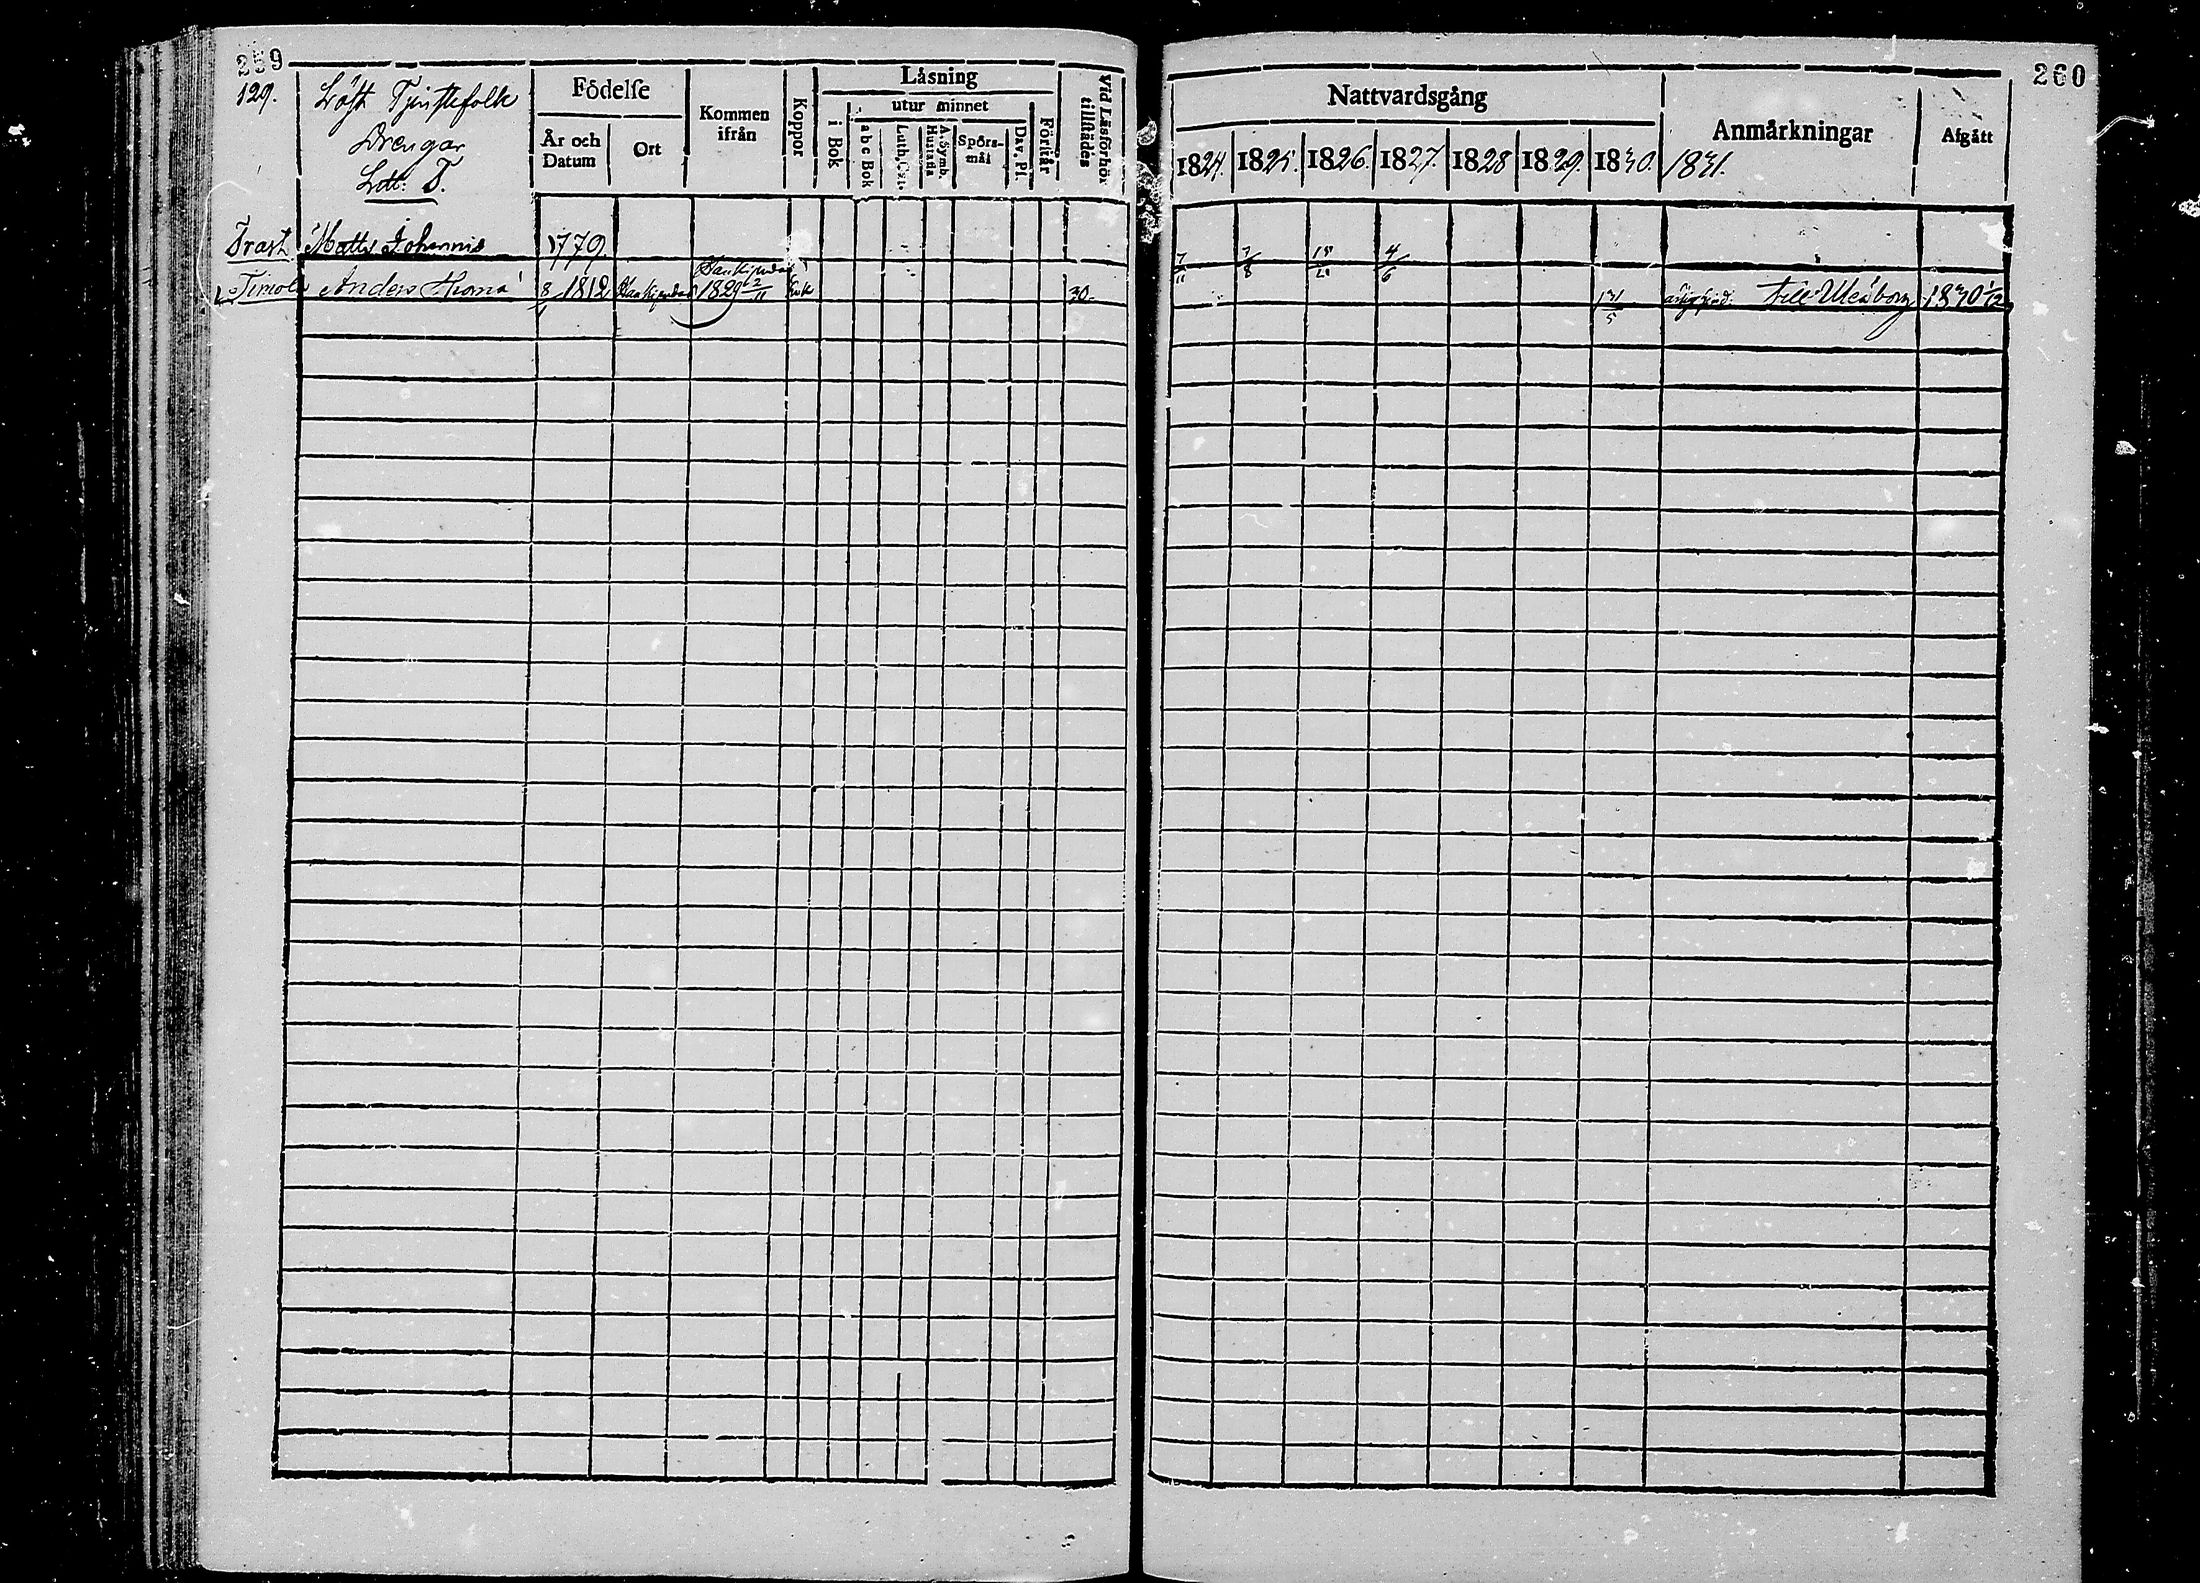 259
129.
Löst Tjenstefolk
Drengar
Litt. T.
Födelse
År och Datum
Ort
Kommen ifrån
Koppor
Läsning
i Bok
utur minnet
abc Bok
Luth. Cat.
A. Symb. Hustafla
Spörsmål
Dav. Ps.
Förstår
Vid Läsförhör tillstädes
Trast Matts Johannis 1779.
Anders 8/1 1812 Haukipudas Haukipudas 1829 2/11 30.
260
Nattvardsgång
1824. 1825. 1826. 1827. 1828 1829. 1830. 1831.
Anmärkningar
Afgått
7/11 7/8 15/10 4/6
31/5 till Uleåborg 1830 1/12